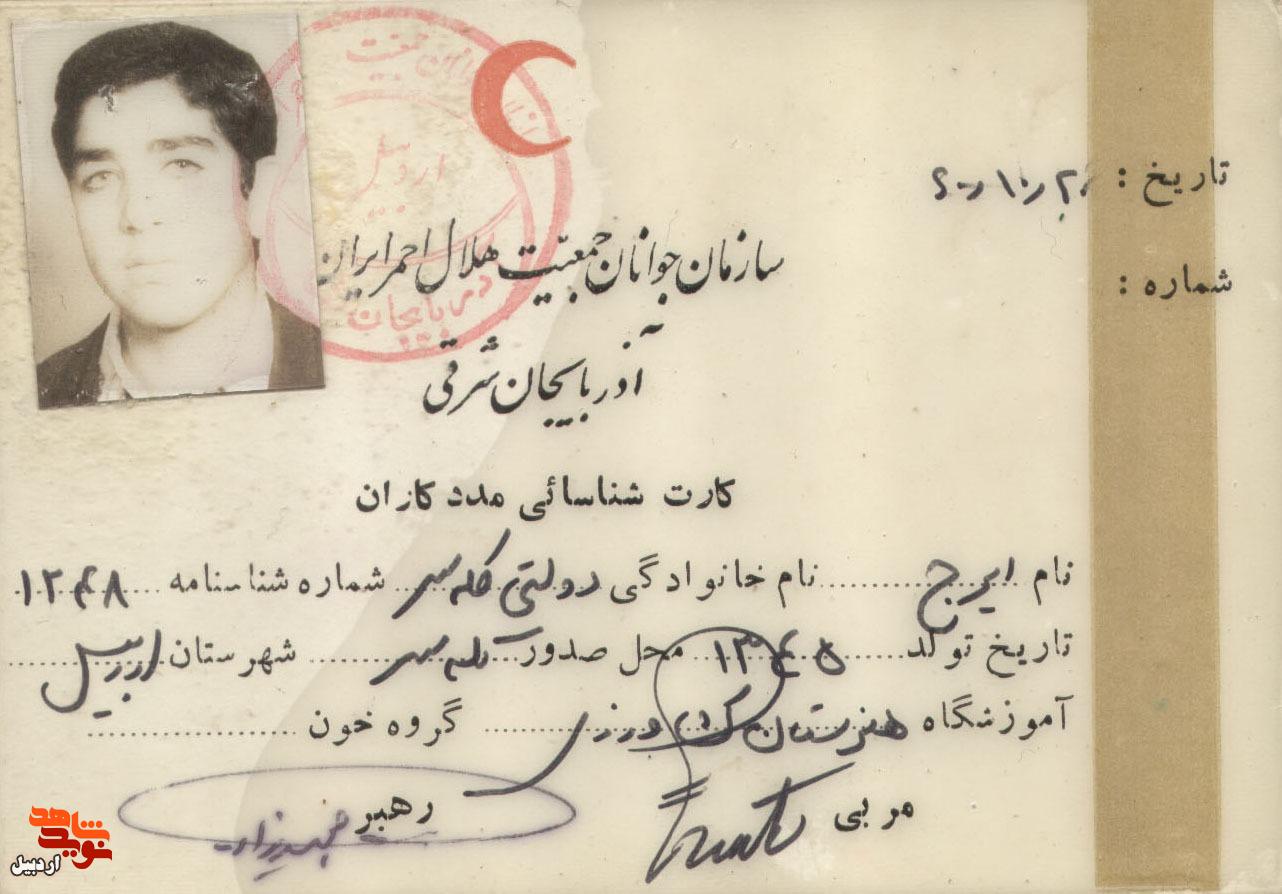 تاریخ : ۶۰/۱۰/۲
شماره :
سازمان جوانان جمعیّت هلال احمر ایران
آذربایجان شرقی
کارت شناسائی مددکاران
نام ایرج نام خانوادگی دولتی کله سر شماره شناسنامه ۱۲۴۸
تاریخ تولد ۱۳۴۵ محل صدور کله سر شهرستان اردبیل
آموزشگاه هنرستان کشاورزی گروه خون
مربی رهبر
اردبیل
آذربایجان
نوید شاهد
اردبیل